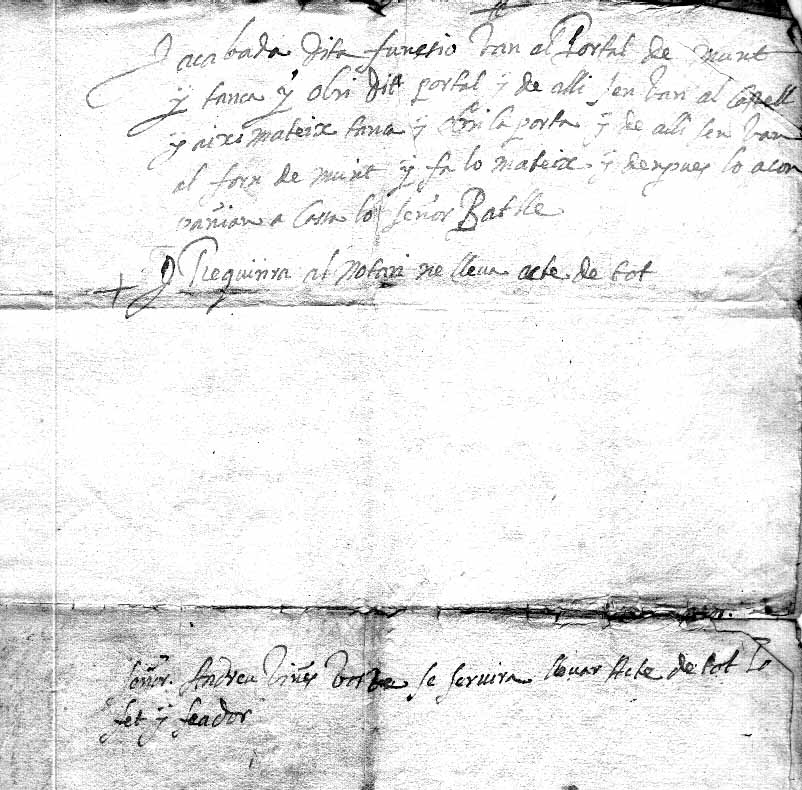 J acabada dita functio van al Portal de munt
y tanca y obri dit portal y de alli sen van al Castell
y aixi mateix tanca y obri la porta y de alli sen van
al forn de munt y fa lo mateix y despues lo acom
pañian a Cassa lo señor Batlle
J Requirira al Notari ne lleva acte de tot
señor Andreu Viñes se servira llevar Acte de tot lo
fet y feador